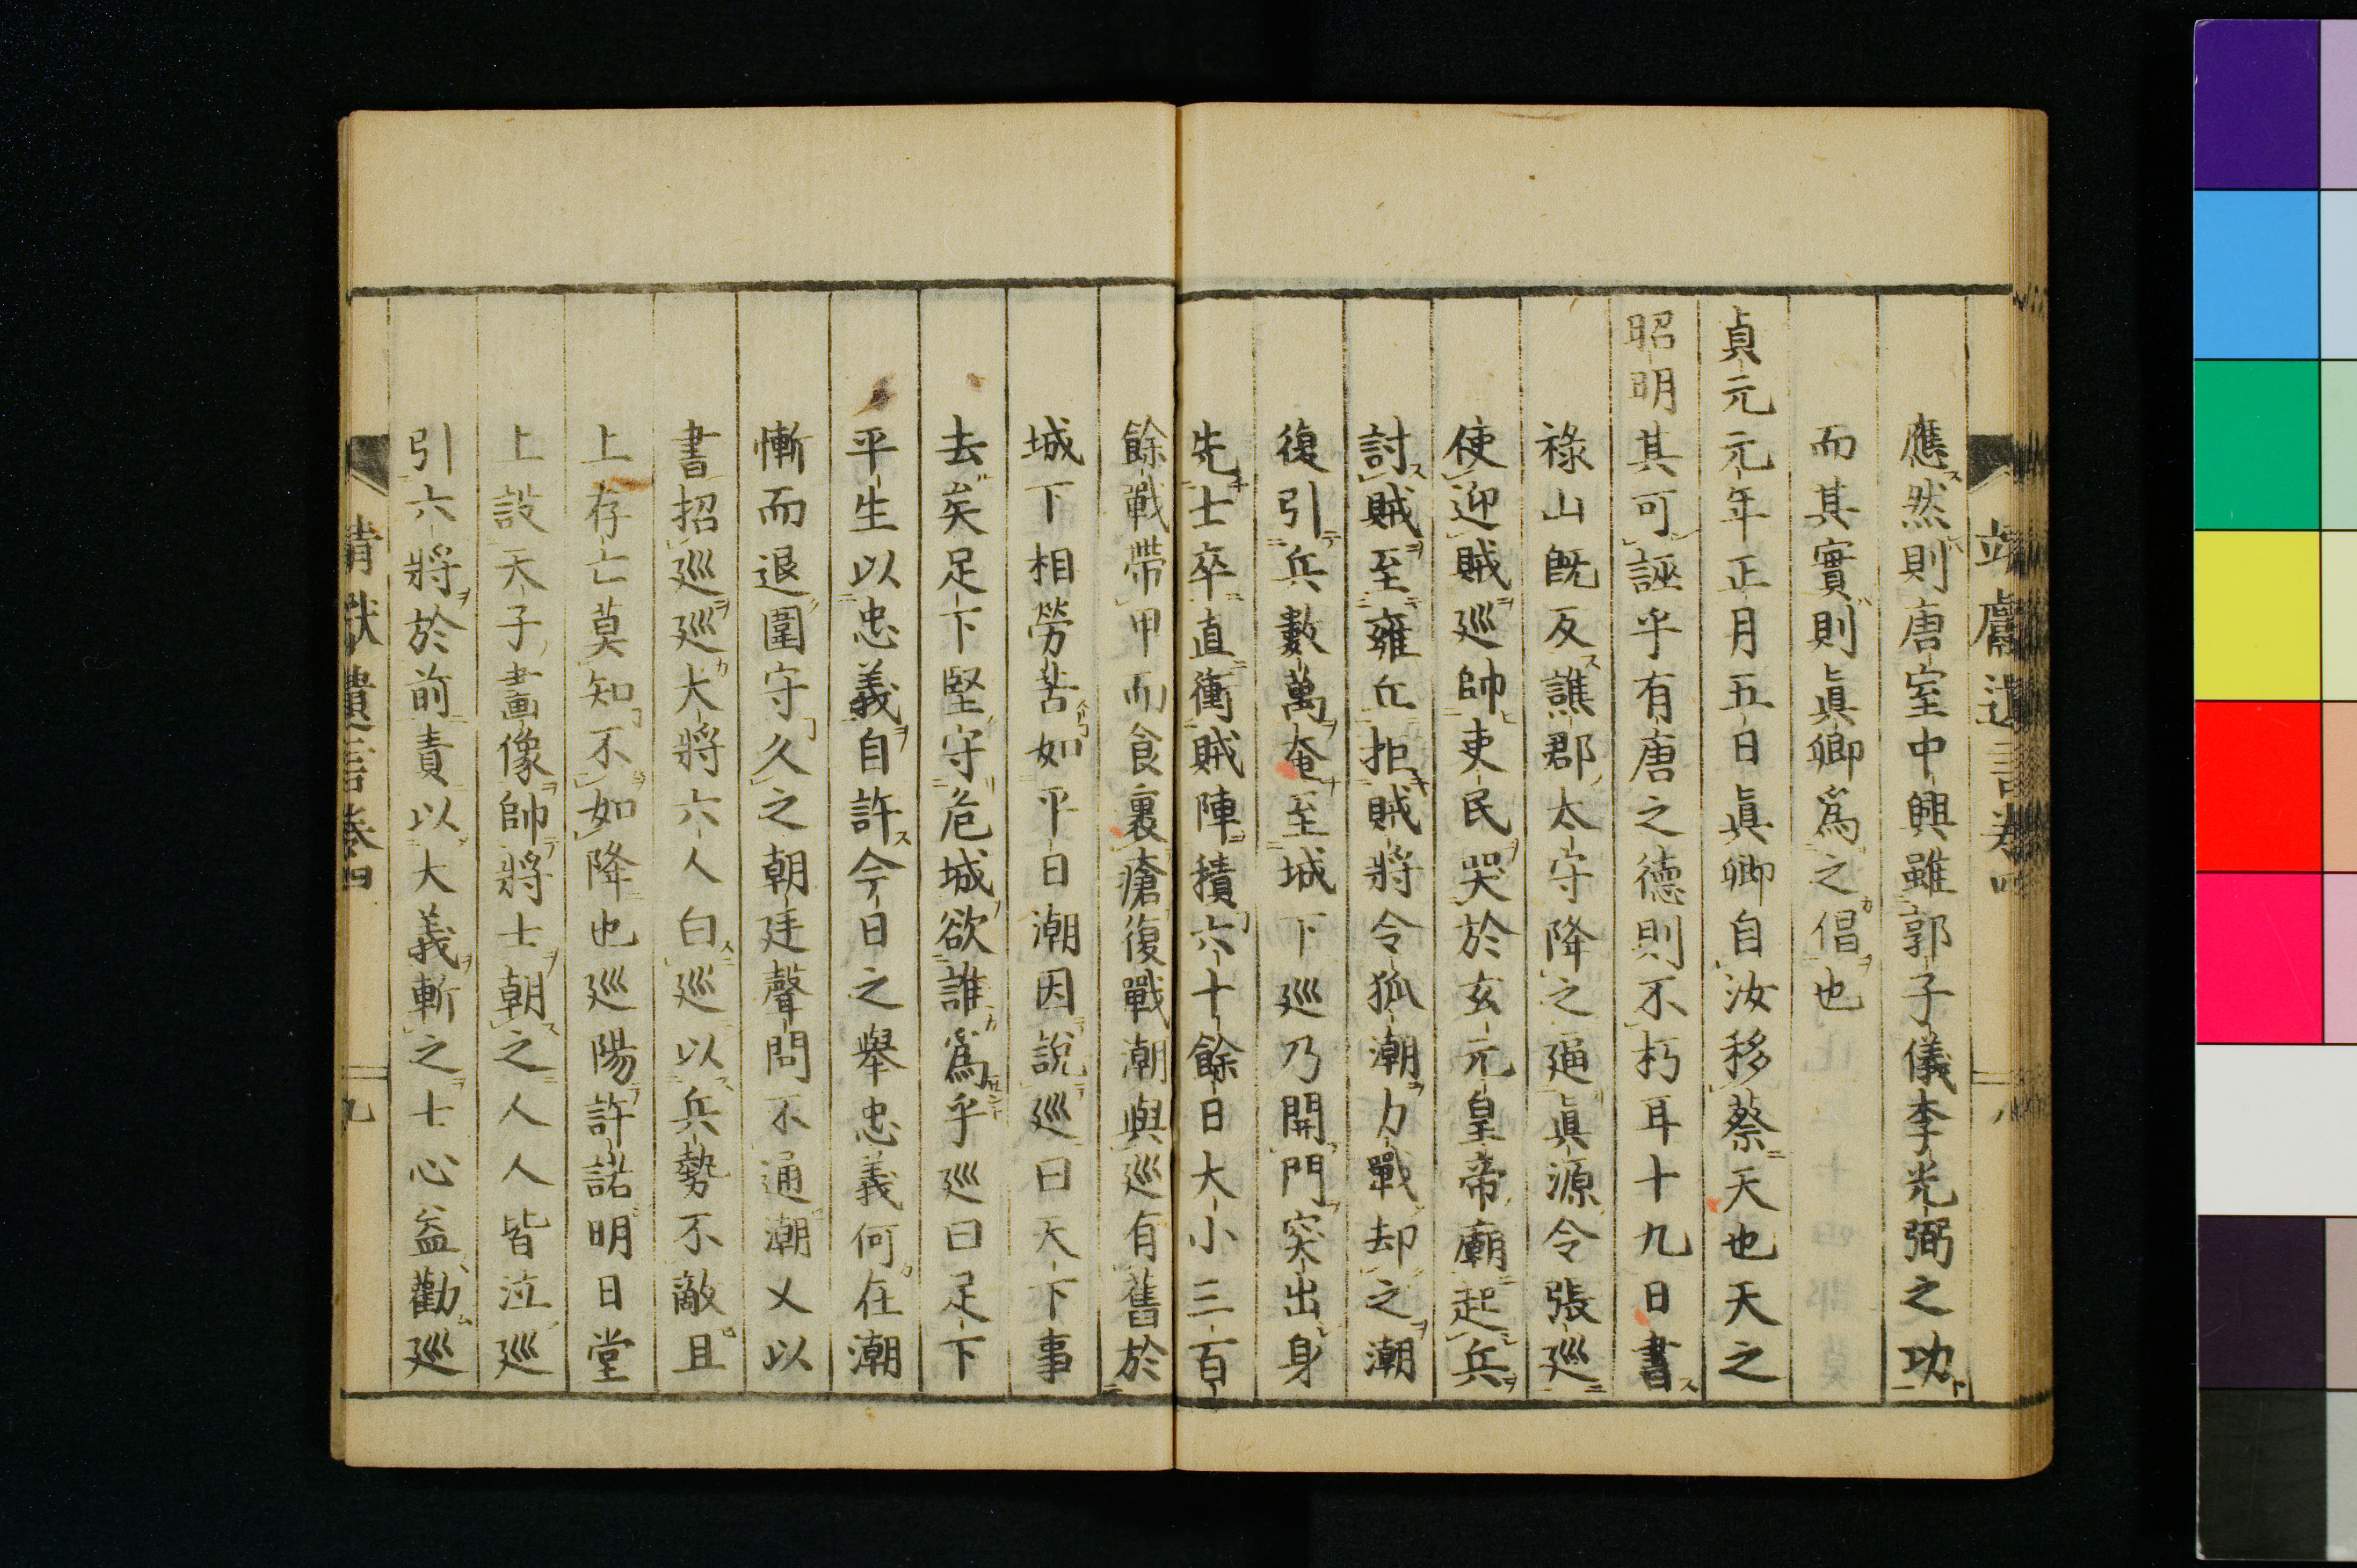 應然則唐室中興雖郭子儀李光弼之功
而其實則眞卿爲之倡也
貞元元年正月五日眞卿自汝移蔡天也天之
昭明其可誣乎有唐之德則不朽耳十九日書
祿山既反譙郡太守降之逼眞源令張巡
使迎賊巡帥吏民哭於玄元皇帝廟起兵
討賊至雍丘拒賊將令狐潮力戰却之潮
復引兵數萬奄至城下巡乃開門突出身
先士卒直衝賊陣積六十餘日大小三百
餘戰帶甲而食裹瘡復戰潮與巡有舊於
城下相勞苦如平日潮因說巡曰天下事
去矣足下堅守危城欲誰爲乎巡曰足下
平生以忠義自許今日之舉忠義何在潮
慚而退圍守久之朝廷聲問不通潮乂以
書招巡巡大將六人白巡以兵勢不敵且
上存亡莫知不如降也巡陽許諾明日堂
上設天子畫像帥將士朝之人人皆泣巡
引六將於前責以大義斬之士心益勸巡
靖獻遺言卷四 九